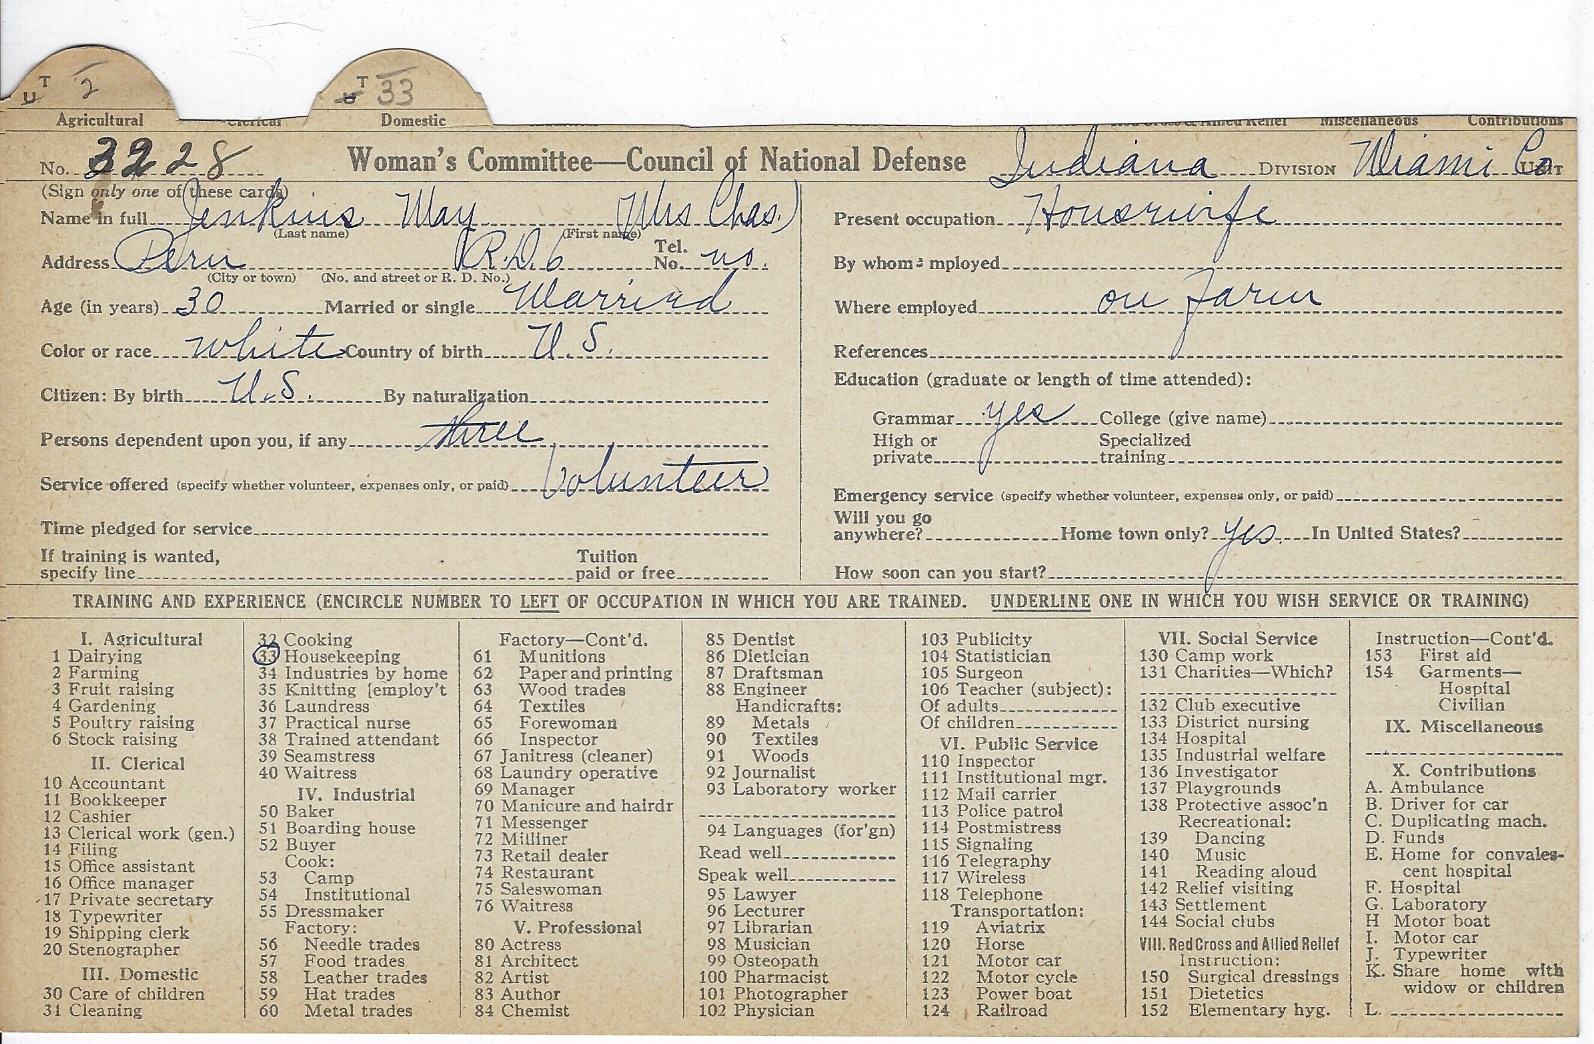 T U 2 T U 33
Agricultural Clerical Domestic Red Cross & Allied Relief Miscellaneous Contributions
No. 3228 Woman's Committee—Council of National Defense Indiana DIVISION Miami Co UNIT
(Sign only one of these cards)
Name in full Jenkins May (Mrs Chas.)
(Last name) (First name)
Address Peru R.D.6 Tel. No. no.
(City or town) (No. and street or R. D. No.)
Age (in years) 30 Married or single Married
Color or race white Country of birth U.S.
Citizen: By birth U.S. By naturalization
Persons dependent upon you, if any three
Service offered (specify whether volunteer, expenses only, or paid) Volunteer
Time pledged for service
If training is wanted, Tuition
specify line paid or free
Present occupation Housewife
By whom employed
Where employed on farm
References
Education (graduate or length of time attended):
Grammar yes College (give name)
High or Specialized
private training
Emergency service (specify whether volunteer, expenses only, or paid)
Will you go
anywhere? Home town only? yes. In United States?
How soon can you start?
TRAINING AND EXPERIENCE (ENCIRCLE NUMBER TO LEFT OF OCCUPATION IN WHICH YOU ARE TRAINED. UNDERLINE ONE IN WHICH YOU WISH SERVICE OR TRAINING)
I. Agricultural
1 Dairying
2 Farming
3 Fruit raising
4 Gardening
5 Poultry raising
6 Stock raising
II. Clerical
10 Accountant
11 Bookkeeper
12 Cashier
13 Clerical work (gen.)
14 Filing
15 Office assistant
16 Office manager
17 Private secretary
18 Typewriter
19 Shipping clerk
20 Stenographer
III. Domestic
30 Care of children
31 Cleaning
32 Cooking
33 Housekeeping
34 Industries by home
35 Knitting [employ't
36 Laundress
37 Practical nurse
38 Trained attendant
39 Seamstress
40 Waitress
IV. Industrial
50 Baker
51 Boarding house
52 Buyer
Cook:
53 Camp
54 Institutional
55 Dressmaker
Factory:
56 Needle trades
57 Food trades
58 Leather trades
59 Hat trades
60 Metal trades
Factory—Cont'd.
61 Munitions
62 Paper and printing
63 Wood trades
64 Textiles
65 Forewoman
66 Inspector
67 Janitress (cleaner)
68 Laundry operative
69 Manager
70 Manicure and hairdr
71 Messenger
72 Milliner
73 Retail dealer
74 Restaurant
75 Saleswoman
76 Waitress
V. Professional
80 Actress
81 Architect
82 Artist
83 Author
84 Chemist
85 Dentist
86 Dietician
87 Draftsman
88 Engineer
Handicrafts:
89 Metals
90 Textiles
91 Woods
92 Journalist
93 Laboratory worker
94 Languages (for'gn)
Read well
Speak well
95 Lawyer
96 Lecturer
97 Librarian
98 Musician
99 Osteopath
100 Pharmacist
101 Photographer
102 Physician
103 Publicity
104 Statistician
105 Surgeon
106 Teacher (subject):
Of adults
Of children
VI. Public Service
110 Inspector
111 Institutional mgr.
112 Mail carrier
113 Police patrol
114 Postmistress
115 Signaling
116 Telegraphy
117 Wireless
118 Telephone
Transportation:
119 Aviatrix
120 Horse
121 Motor car
122 Motor cycle
123 Power boat
124 Railroad
VII. Social Service
130 Camp work
131 Charities—Which?
132 Club executive
133 District nursing
134 Hospital
135 Industrial welfare
136 Investigator
137 Playgrounds
138 Protective assoc'n
Recreational:
139 Dancing
140 Music
141 Reading aloud
142 Relief visiting
143 Settlement
144 Social clubs
VIII. Red Cross and Allied Relief
Instruction:
150 Surgical dressings
151 Dietetics
152 Elementary hyg.
Instruction—Cont'd.
153 First aid
154 Garments—
Hospital
Civilian
IX. Miscellaneous
X. Contributions
A. Ambulance
B. Driver for car
C. Duplicating mach.
D. Funds
E. Home for convales-
cent hospital
F. Hospital
G. Laboratory
H Motor boat
I. Motor car
J. Typewriter
K. Share home with
widow or children
L.